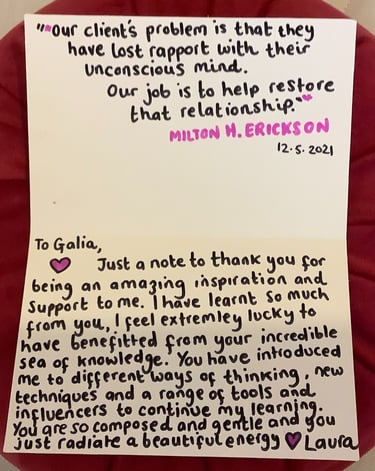 "Our client's problem is that they
have lost rapport with their
unconscious mind.
Our job is to help restore
that relationship."
MILTON H. ERICKSON
12.5.2021
To Galia,
Just a note to thank you for
being an amazing inspiration and
support to me. I have learnt so much
from you, I feel extremley lucky to
have benefitted from your incredible
sea of knowledge. You have introduced
me to different ways of thinking, new
techniques and a range of tools and
influencers to continue my learning.
You are so composed and gentle and you
just radiate a beautiful energy Laura